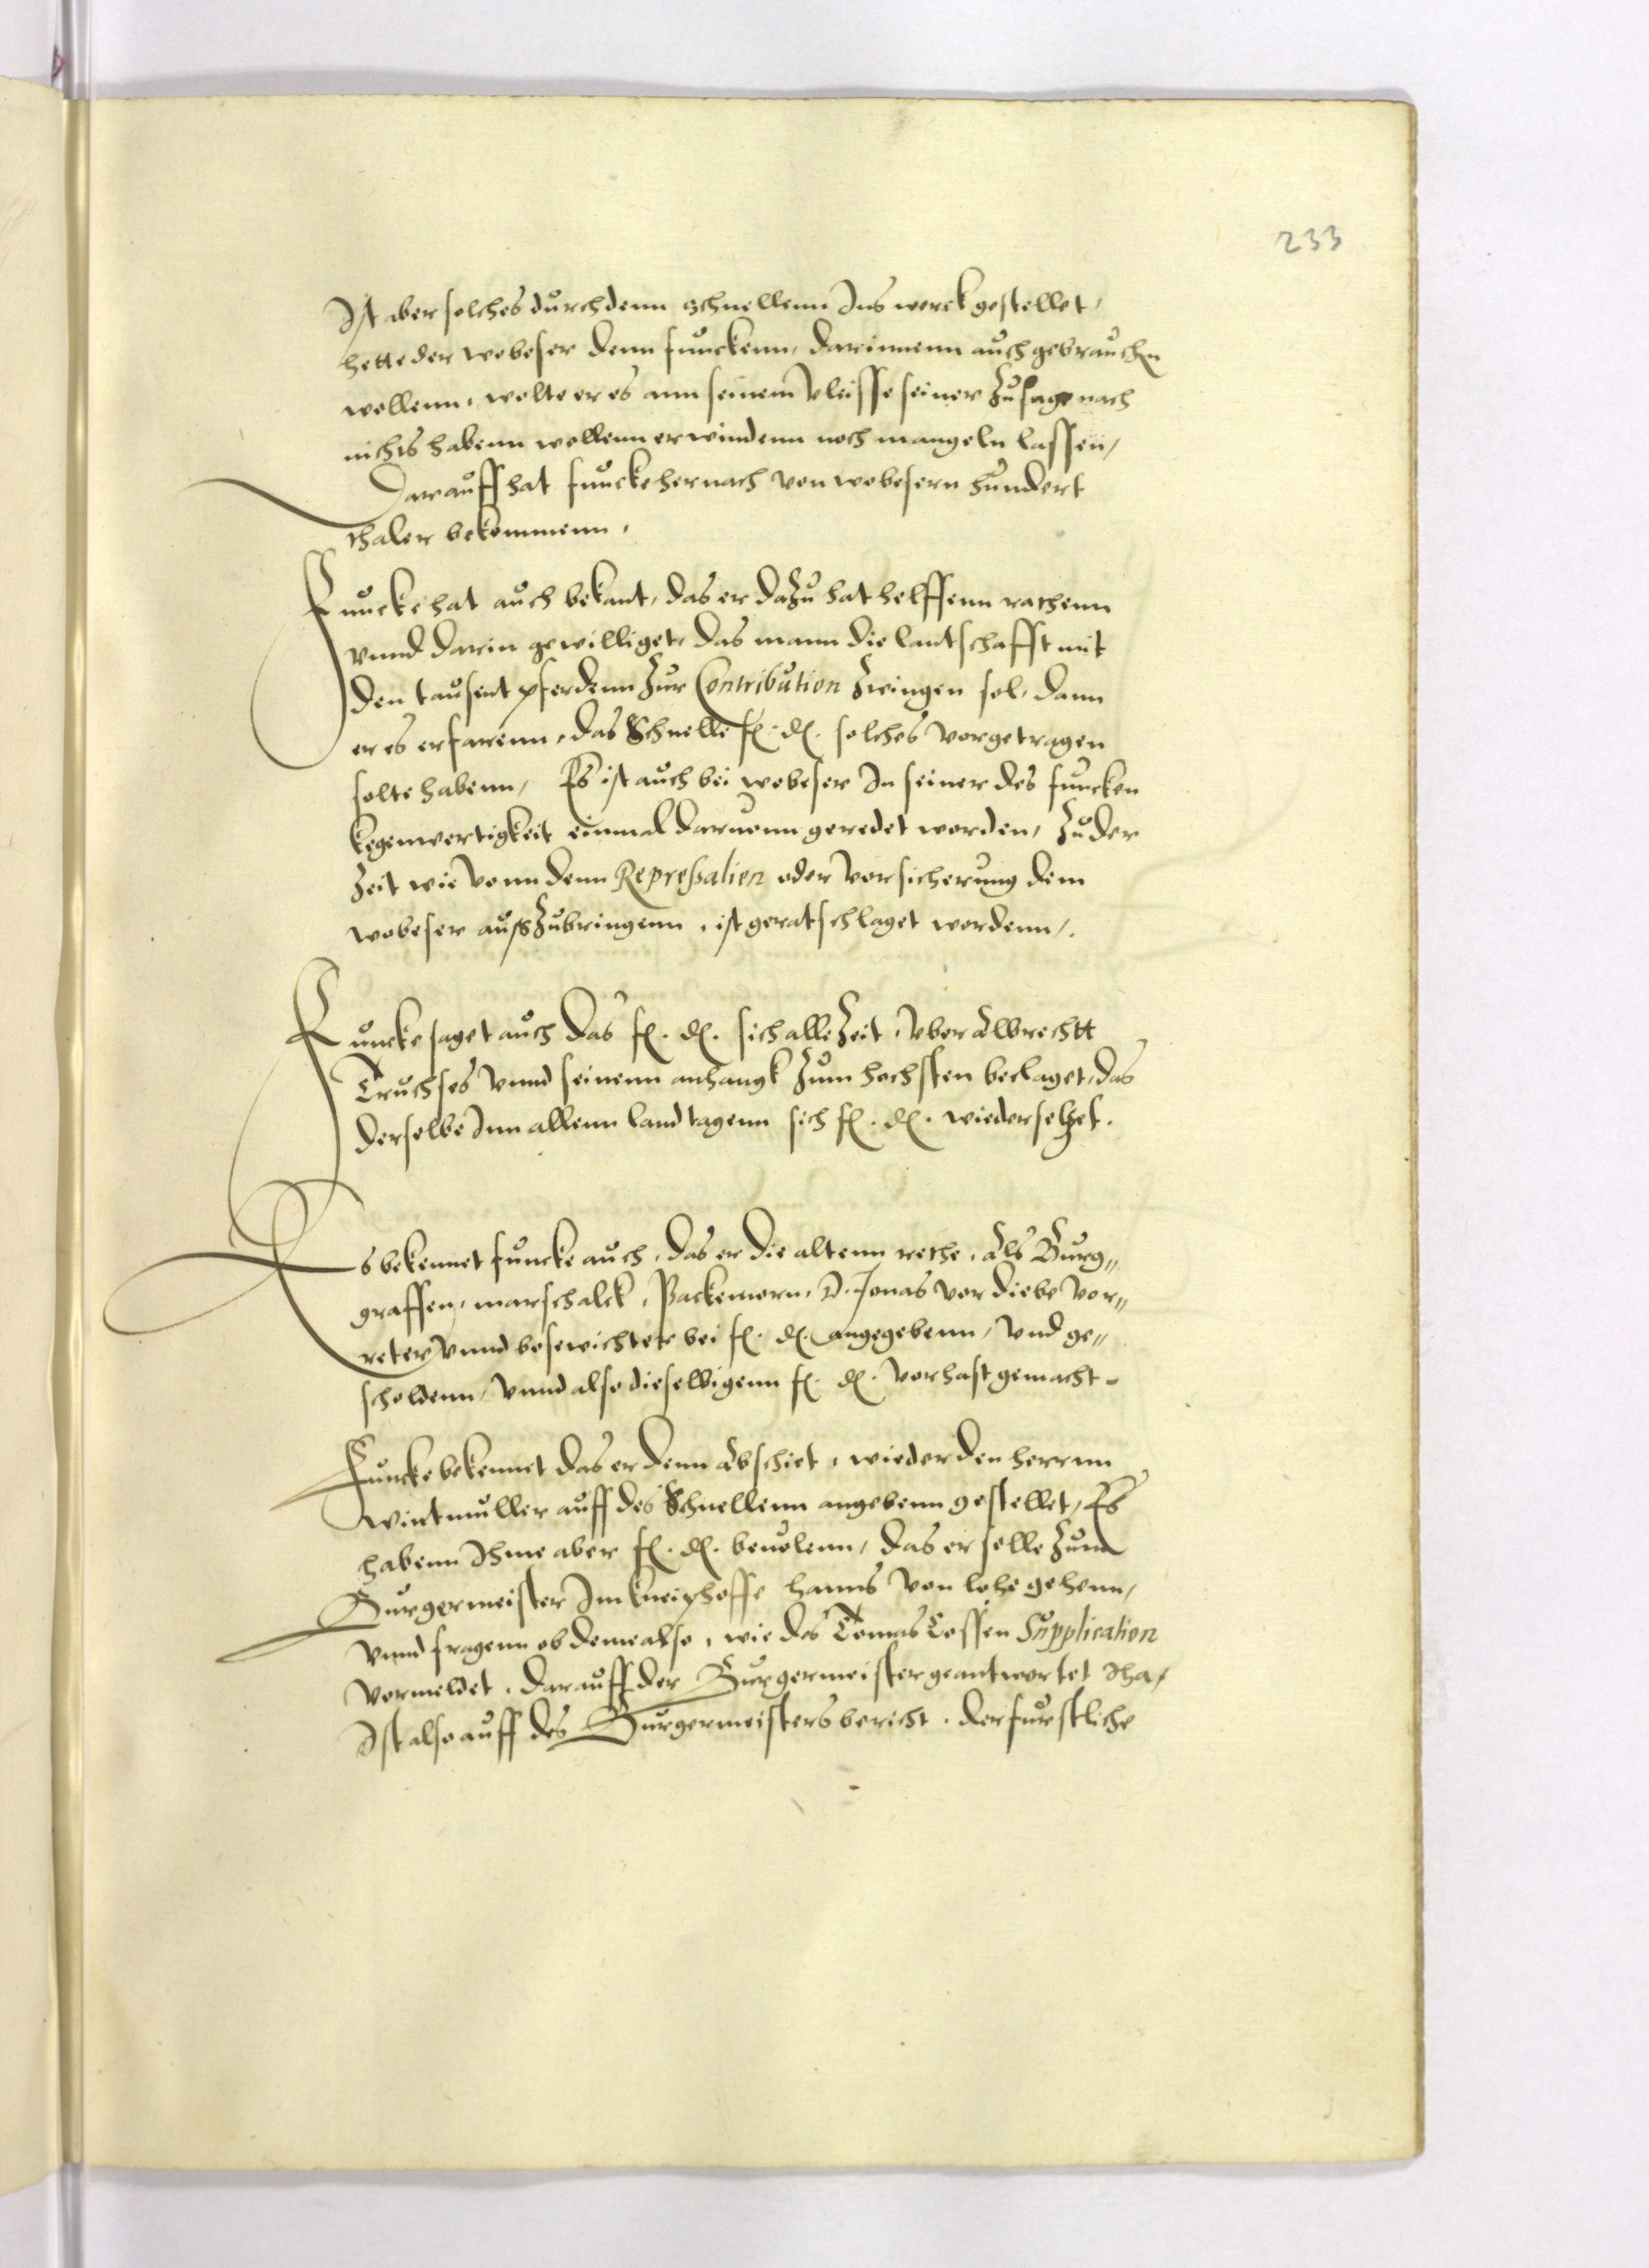 233
Ist aber solches durch denn Schnellenn Ins werck gestellet,
hette der wobeser denn funckenn, darinnenn auch gebrauchen
wollenn, wolte er es ann seinem vleisse seiner zusage nach
nichts habenn wollenn erwindenn noch mangeln lassen,
Darauff hat funcke hernach von wobesern hundert
thaler bekommenn.
Funcke hat auch bekant, das er dazu hat helffenn rathenn
vnnd darin gewilliget, das mann die lantschafft mit
den tausent pferdenn zur Contribution zwingen sol, dann
er es erfarenn, das Schnelle f. d. solches vorgetragen
solte habenn, Es ist auch bei wobeser In seiner des funcken
kegenwertigkeit einmal daruonn geredet worden, zu der
zeit wie vonn denn Repressalien oder vorsicherung dem
wobeser auszubringenn, ist geratschlaget wordenn,.
Funcke saget auch das f. d. sich alle zeit, vber Albrechtt
Truchses vnnd seinenn anhangk zum hochsten beclaget, das
derselbe Inn allenn landtagenn sich f. d. wiedersetzet.
Es bekennet funcke auch, das er die altenn rethe, Als Burg„
graffen, marschalck, Packemorn, D. Jonas vor diebe vor„
reter vnnd bosewichter bei f. d. angegebenn, vnd ge„
scholdenn, vnnd also dieselbigenn f. d. vorhast gemacht.
Funcke bekennet das er denn Abschiet, wieder den herrnn
wintmuller auff des Schnellenn angebenn gestellet, Es
habenn Ihme aber f. d. beuolenn, das er solle zum
Burgermeister Im kneiphoffe hanns von lohe gehenn,
vnnd fragenn ob deme also, wie des Tomas Cossen Supplication
vormeldet, darauff der Burgermeister geantwortet Iha,
Ist also auff des Burgermeisters bericht, der furstliche